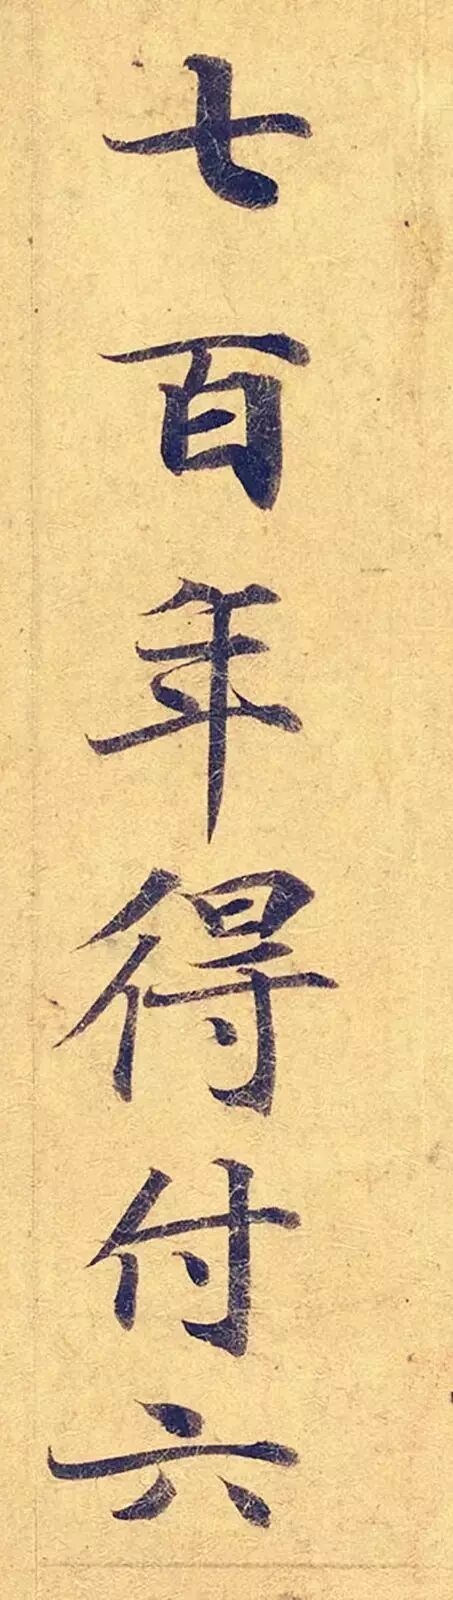 七百年得付六